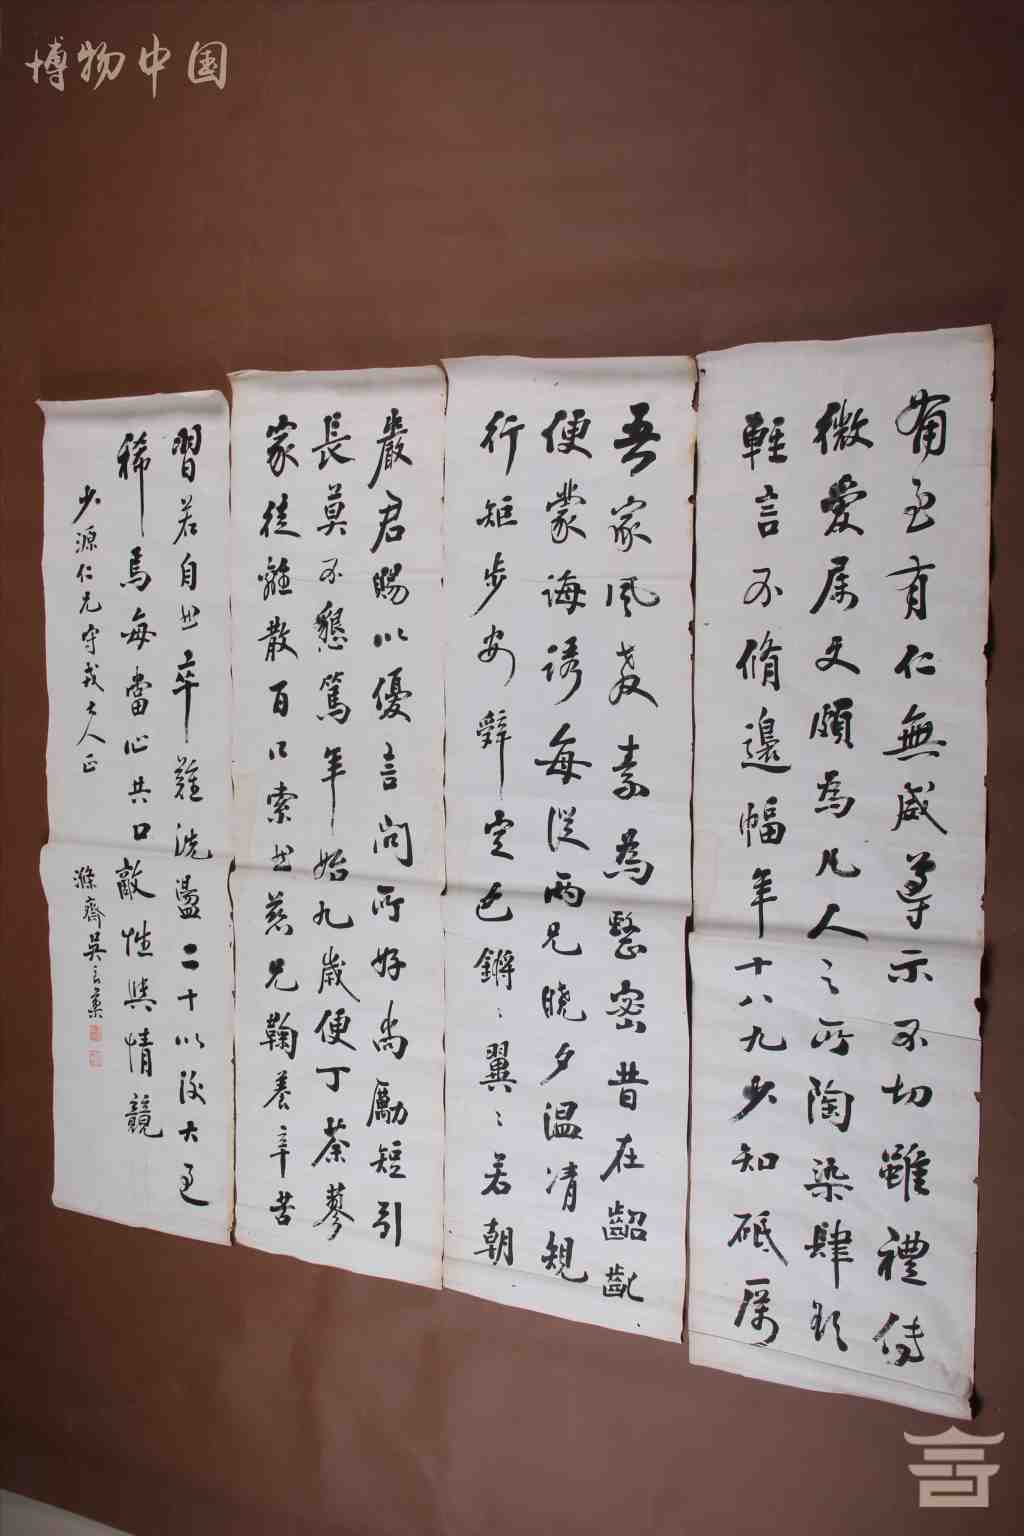 博物中国
備至有仁無威導示不切雖禮傳
微愛属文頗為凡人之所陶染肆欲
輕言不脩邊幅年十八九少知砥厲
吾家風教素為整密昔在齠齔
便蒙誨誘每從兩兄曉夕温凊規
行矩步安辭定色鏘〻翼〻若朝
嚴君賜以優言問所好尚勵短引
長莫不懇篤年始九歲便丁荼蓼
家徒離散百口索然慈兄鞠養辛苦
習若自然卒難洗盪二十以後大過
稀焉每當心共口敵性與情競
少源仁兄守戎大人正
滌齋吳